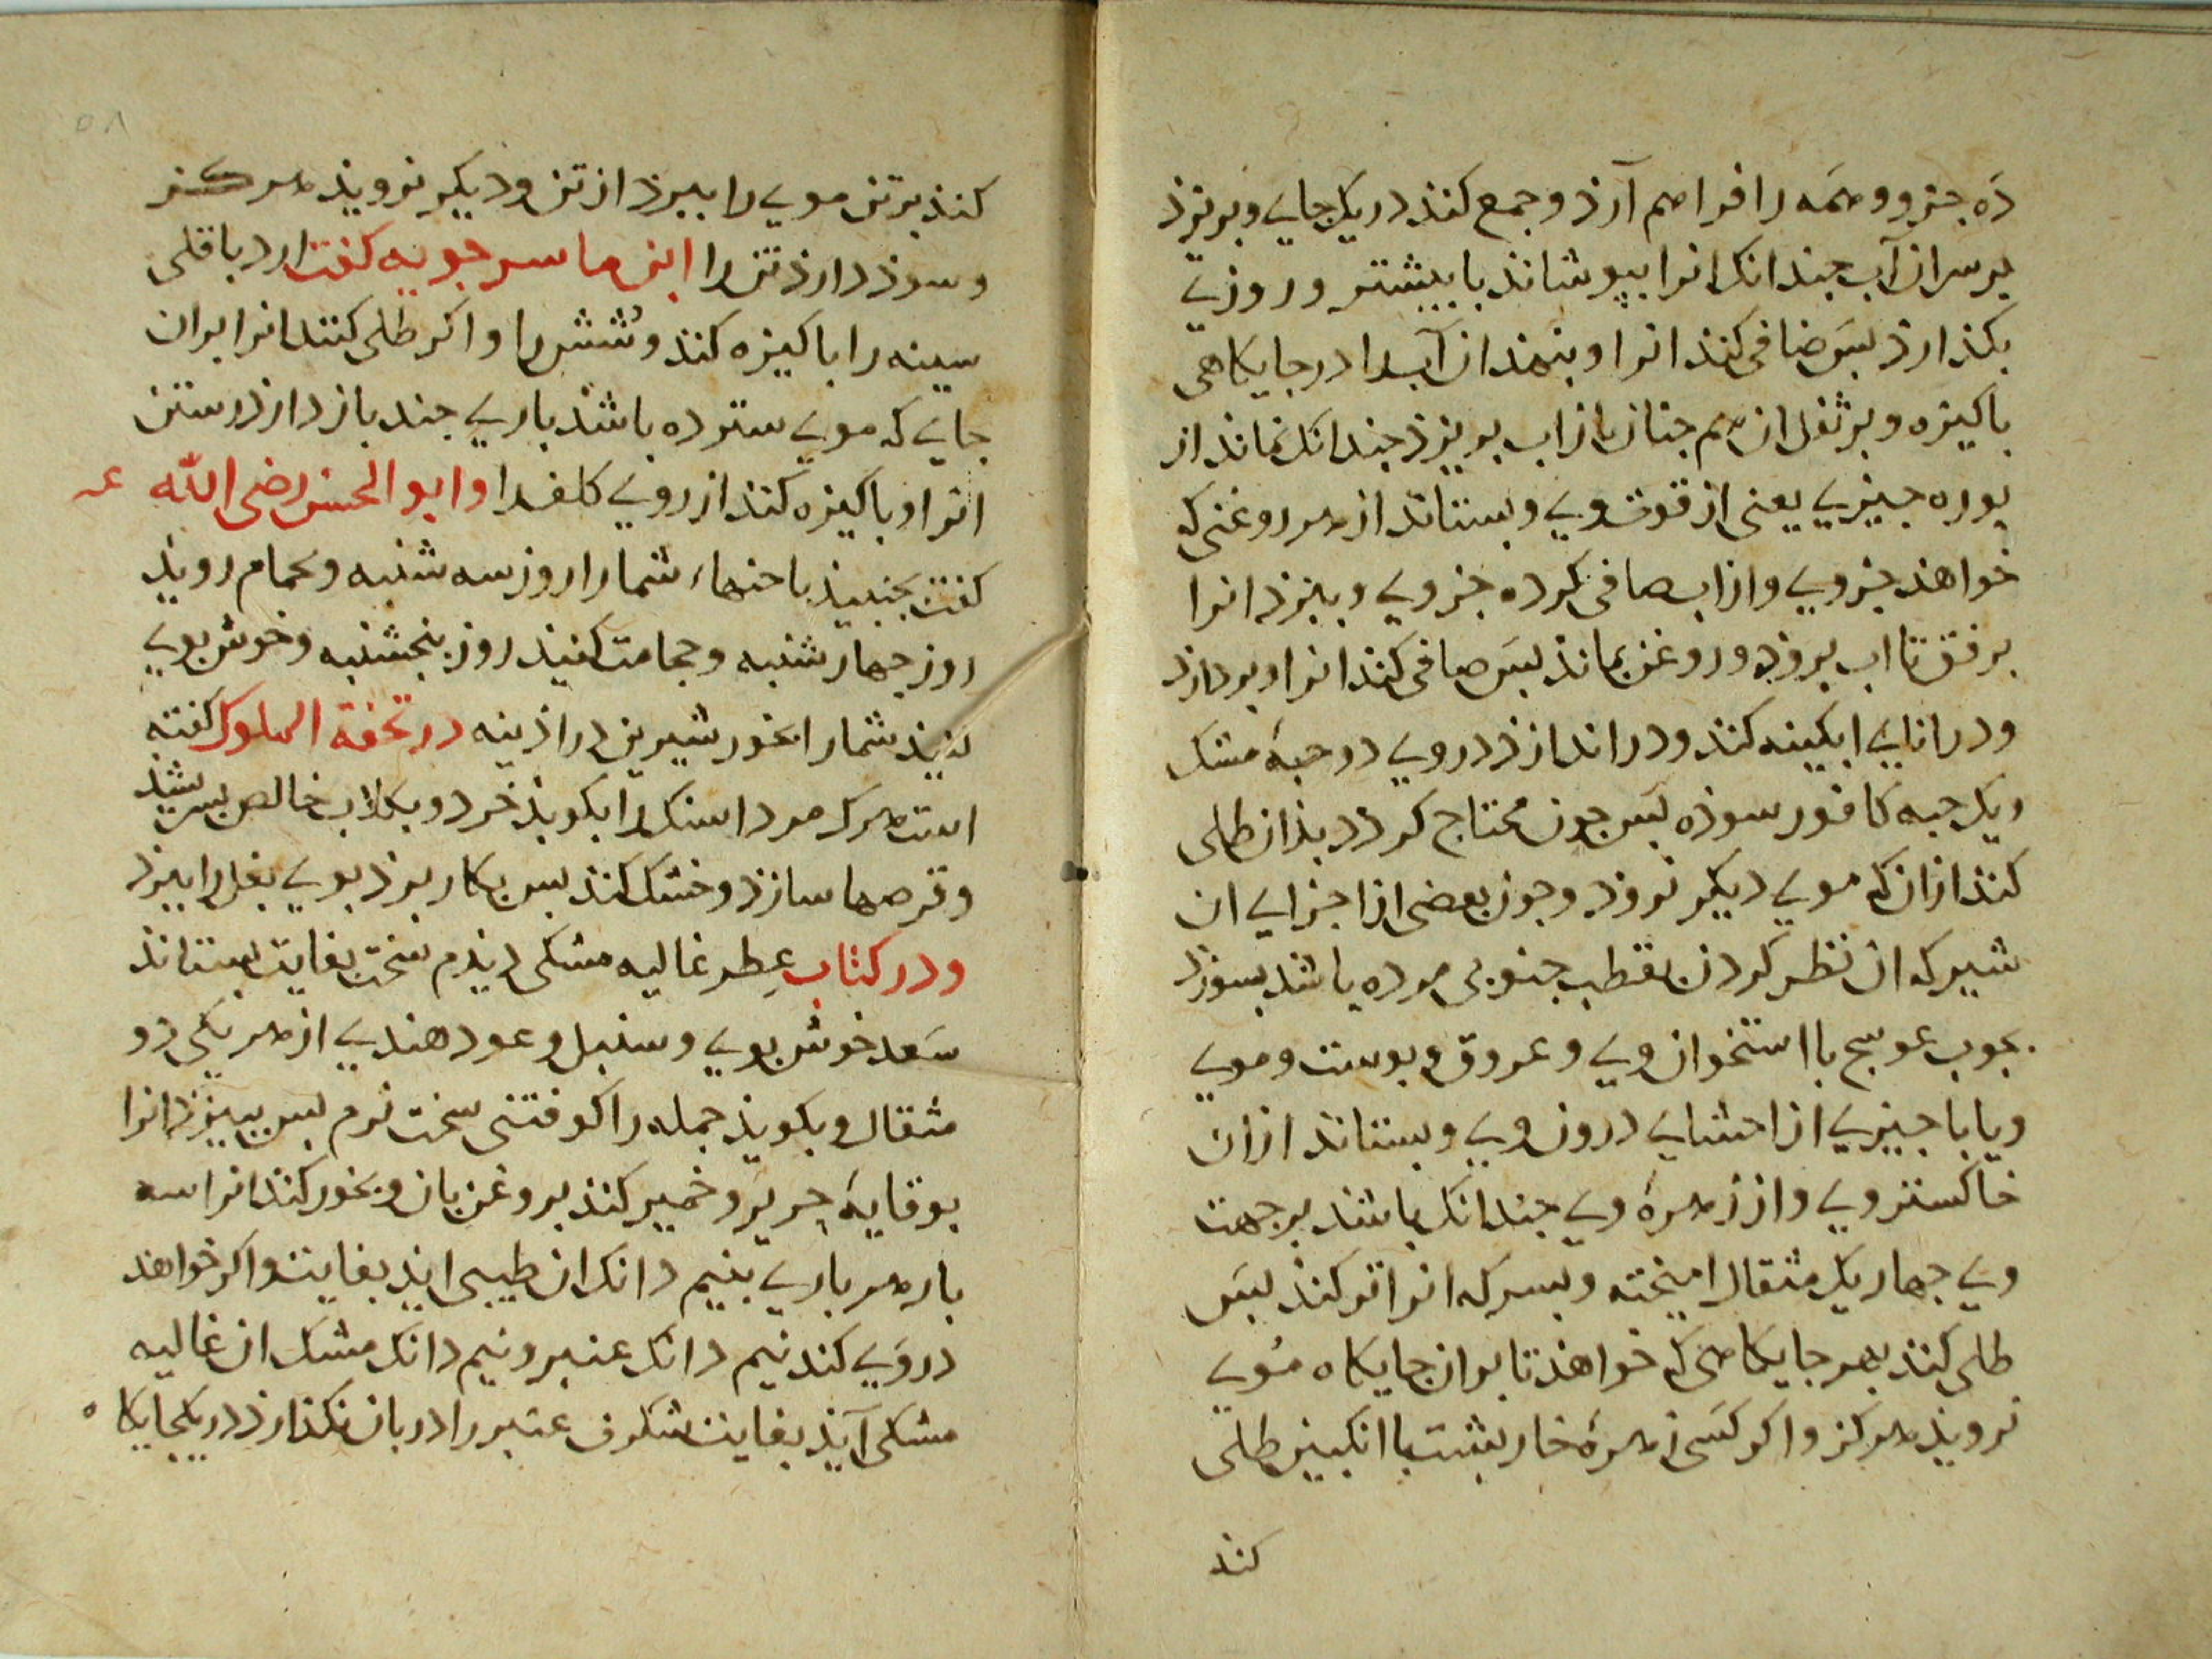 ده جزو و همه را فراهم آرذ و جمع کنذ در یک جای و بریزذ
بر سر ان آب جندانک انرا بپوشانذ یا بیشتر و روزی
بکذارذ بس صافی کنذ انرا و بنهذ ان آب را در جایکاهی
باکیزه و بر ثفل ان هم جنان باز اب بریزذ جندانک نماند از
بوره جیزی یعنی از قوت وی و بستانذ از هر روغنی که
خواهند جزوی و از اب صافی کرده جزوی و ببزذ انرا
برفق تا اب بروذ و روغن بمانذ بس صافی کنذ انرا و بردارذ
و در انای ابکینه کنذ و در اندازذ در وی دو حبه مشک
و یک حبه کافور سوذه بس جون محتاج کردد بذان طلی
کنذ از ان که موی دیکر نروذ و جون بعضی از اجزای ان
شیر که ان نظر کردن بقطب جنوبی مرده باشد بسوزذ
بجوب عوسج با استخوان وی و عروق و بوست و موی
و یا با جیزی از احشای درون وی و بستانذ از ان
خاکستر وی و از زهرهٔ وی جندانک باشد بر جهت
وی جهار یک مثقال امیخته و بسرکه انرا تر کنذ بس
طلی کنذ بهر جایکاهی که خواهند تا بر ان جایکاه موی
نرویذ هرکز و اکر کسی زهرهٔ خاربشت با انکبین طلی
کنذ
۵۸
کنذ بر تن موی را ببرذ از تن و دیکر نرویذ هرکز
و سوذ دارذ تن را ابن ماسرجویه کفت ارد باقلی
سینه را باکیزه کنذ و شش را و اکر طلی کنند انرا بران
جای که موی سترده باشد باری جند باز دارذ رستن
انرا و باکیزه کنذ از روی کلف را و ابو الحسن رضی الله عنه
کفت بجنبیذ باحنهاء شما را روز سه شنبه و بحمام رویذ
روز جهارشنبه و حجامت کنیذ روز بنجشنبه و خوش بوی
کنیذ شما را بخور شیرین در اذینه در تحفة الملوک کفته
است هرک مرداسنک را بکوبذ خرد و بکلاب خالص بسرشذ
و قرصها سازذ و خشک کنذ بس بکار برذ بوی بغل را ببرذ
و در کتاب عطر غالیه مشکی دیذم سخت بغایت بستانذ
سعد خوش بوی و سنبل و عود هندی از هر یکی دو
مثقال و بکوبذ جمله را کوفتنی سخت نرم بس ببیزذ انرا
بوقایهٔ حریر و خمیر کنذ بروغن بان و بخور کنذ انرا سه
بار هر باری بنیم دانک ان طیبی ایذ بغایت و اکر خواهذ
در وی کند نیم دانک عنبر و نیم دانک مشک ان غالیه
مشکی آیذ بغایت شکرف عنبر را در بان بکذارذ در یک جایکاه